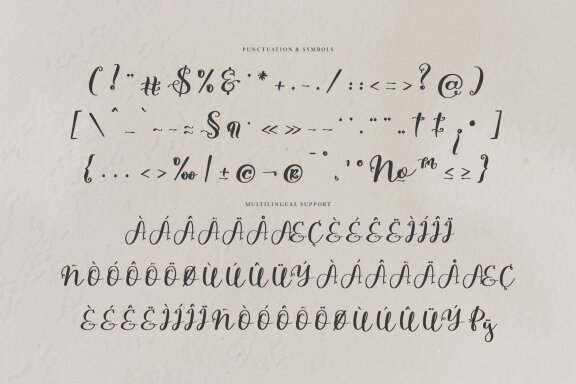 PUNCTUATION & SYMBOLS
( ! ¨ # $ % & ' * + . - . / : : < = > ? @ )
[ \ ^ _ ` ~ - ~ § ¶ · « » – – ' ' . " " „ † ‡ ¡ • ]
{ . . . < > ‰ | ± © ¬ ® ¯ ° ¸ ' º № ™ ≤ ≥ }
MULTILINGUAL SUPPORT
À Á Â Ã Ä Å Æ Ç È É Ê Ë Ì Í Î Ï
Ñ Ò Ó Ô Õ Ö Ø Ù Ú Û Ü Ý À Á Â Ã Ä Å Æ Ç
È É Ê Ë Ì Í Î Ï Ñ Ò Ó Ô Õ Ö Ø Ù Ú Û Ü Ý Þ ÿ